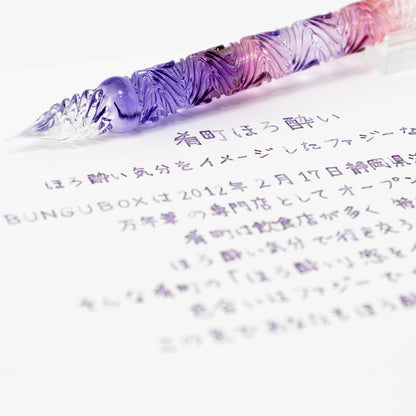 肴町ほろ酔い
ほろ酔い気分をイメージしたファジーな
BUNGUBOXは2012年2月17日静岡県浜
万年筆の専門店としてオープン
肴町は飲食店が多く
ほろ酔い気分で行き交う
そんな肴町の「ほろ酔い」感を
色合いはファジーで
この色であなたもほろ酔